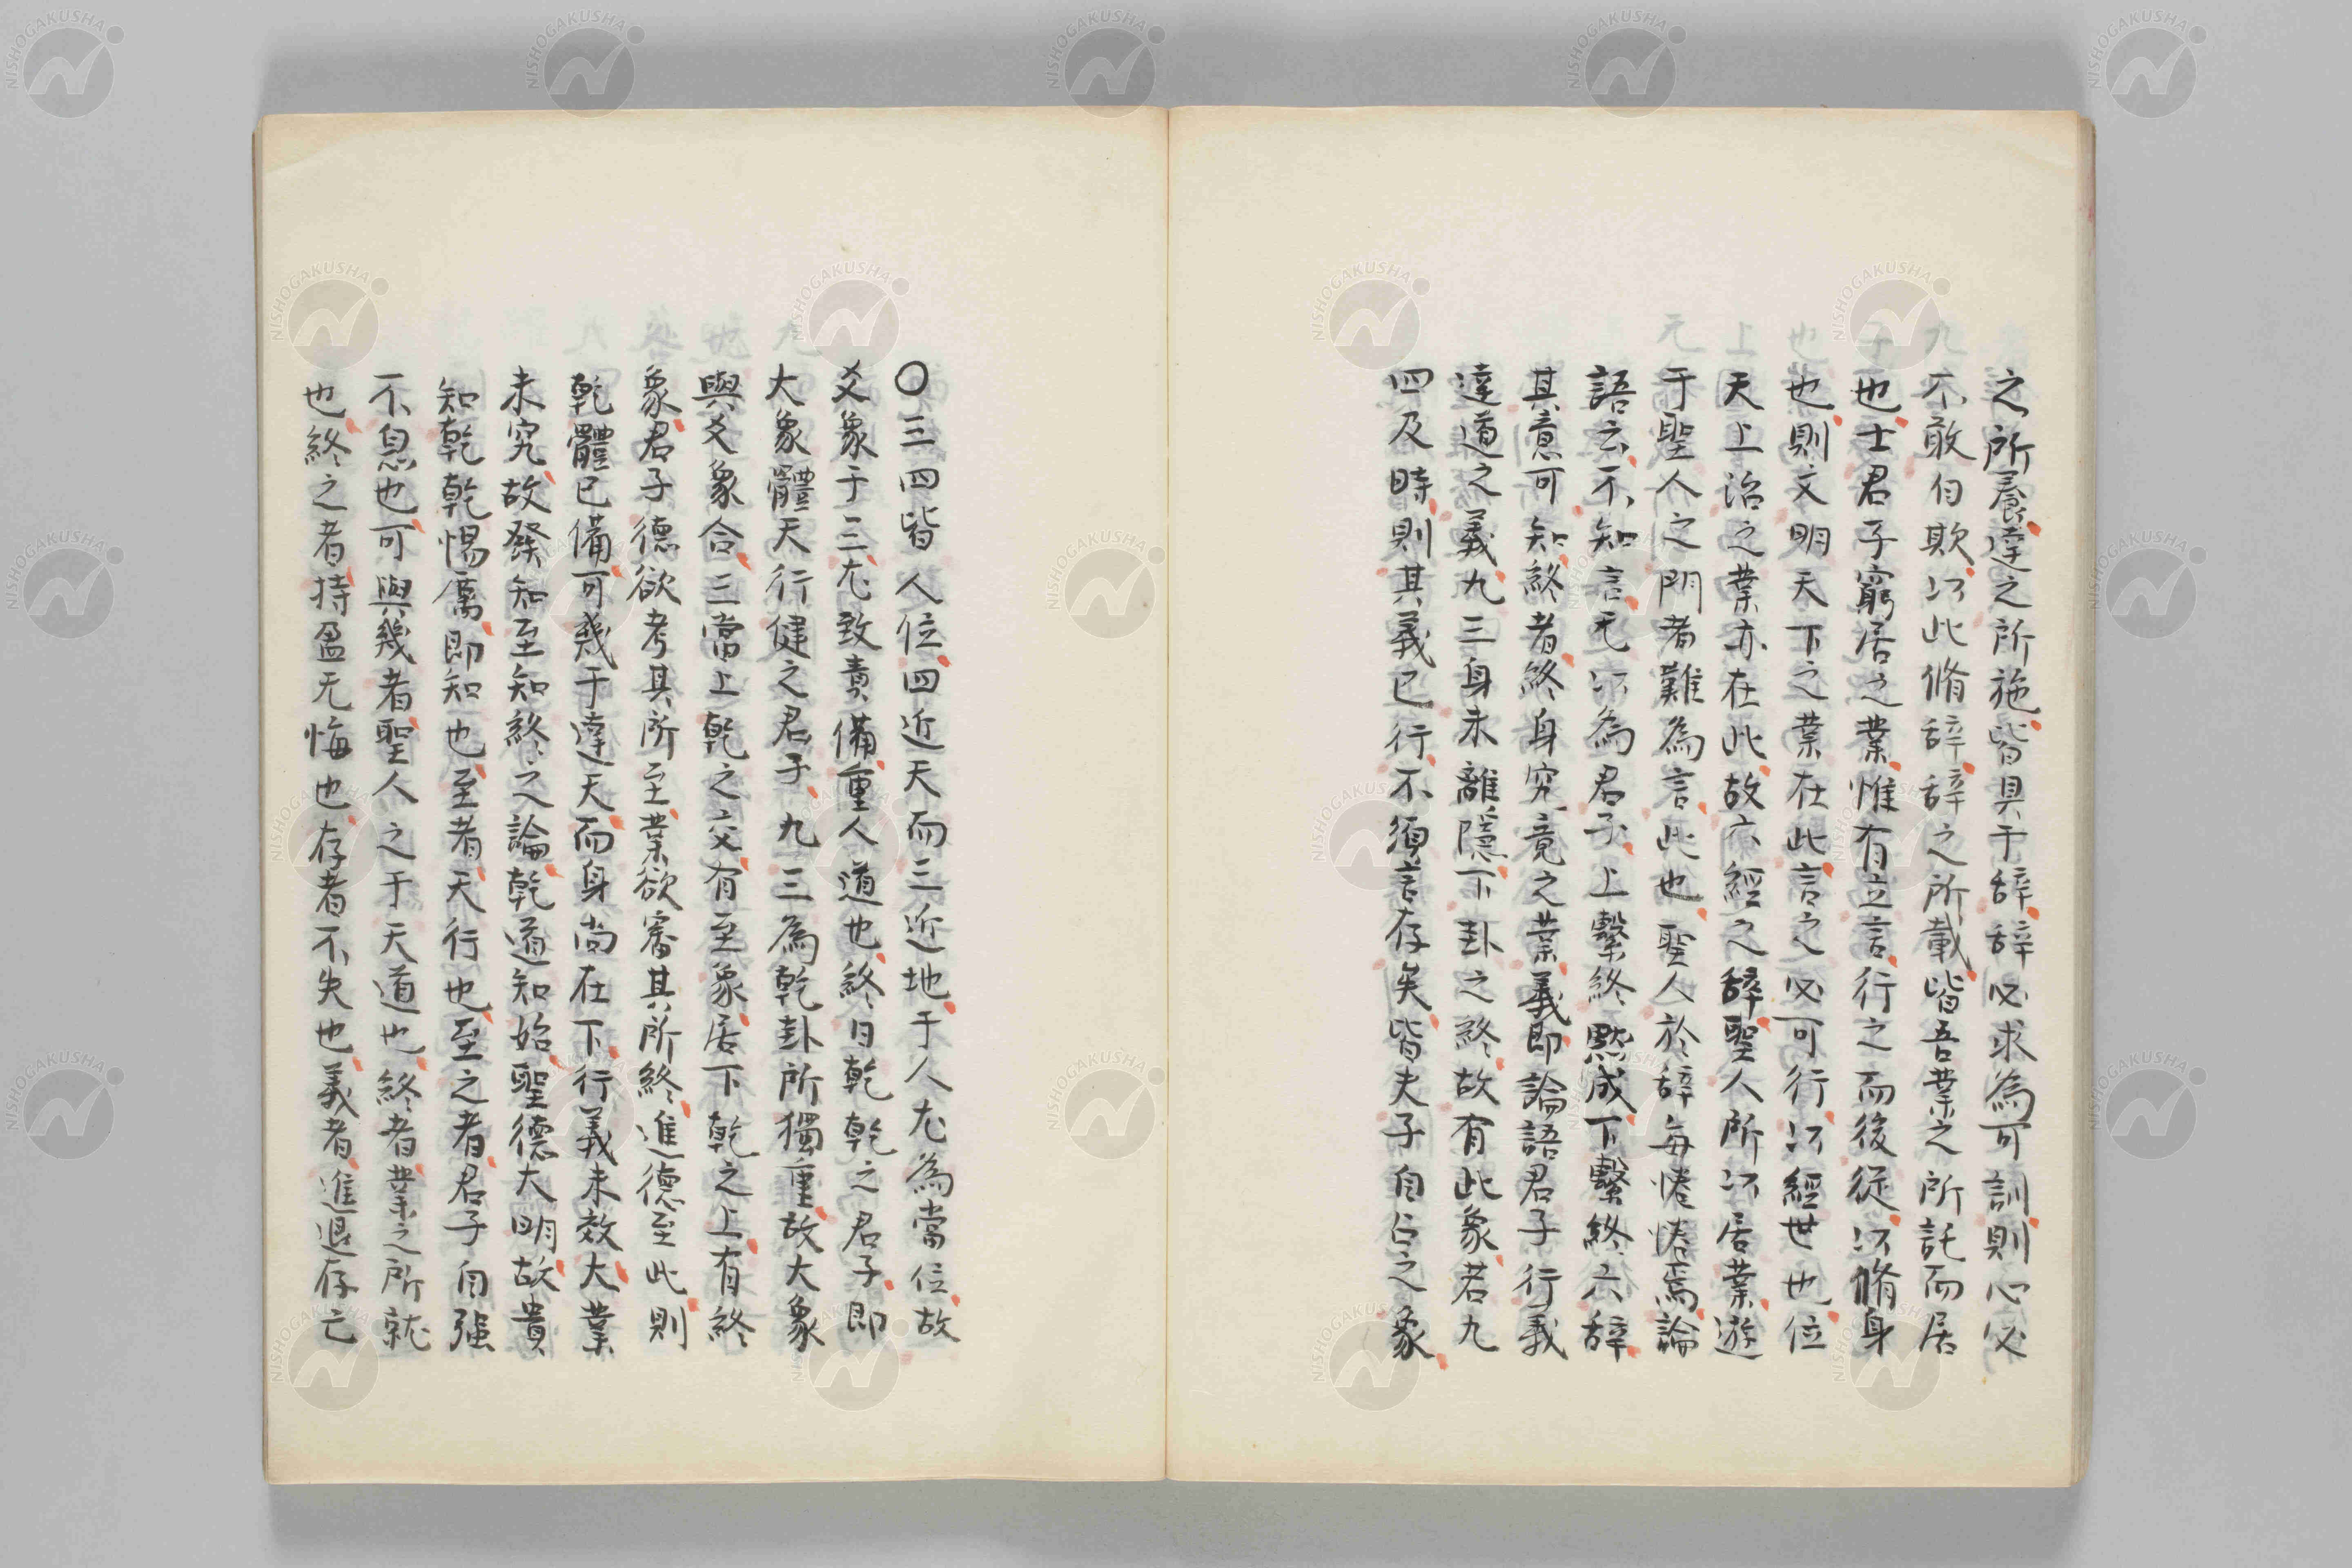 之所養達之所施皆具于辞辞必求為可訓則心必
不敢自欺以此脩辞辞之所載皆吾業之所託而居
也士君子窮居之業惟有立言行之而後從以脩身
也則文明天下之業在此言之必可行以經世也位
天上治之業亦在此故六經之辭聖人所以居業遊
于聖人之門者難為言此也聖人於辞每惓惓焉論
語云不知言无以為君子上繫終黙成下繫終六辞
其意可知終者終身究竟之業義即論語君子行義
達道之義九三身未離隱下卦之終故有此象若九
四及時則其義已行不須言存矣皆夫子自占之象
〇三四皆人位四近天而三近地于人尤為當位故
爻象于三尤致責備重人道也終日乾乾之君子即
大象體天行健之君子九三為乾卦所獨重故大象
與爻象合三當上乾之交有至象居下乾之上有終
象君子德欲考其所至業欲審其所終進德至此則
乾體已備可幾于達天而身尚在下行義未效大業
未究故發知至知終之論乾道知始聖德大明故貴
知乾乾惕厲即知也至者天行也至之者君子自强
不息也可與幾者聖人之于天道也終者業之所就
也終之者持盈无悔也存者不失也義者進退存亡
NISHOGAKUSHA